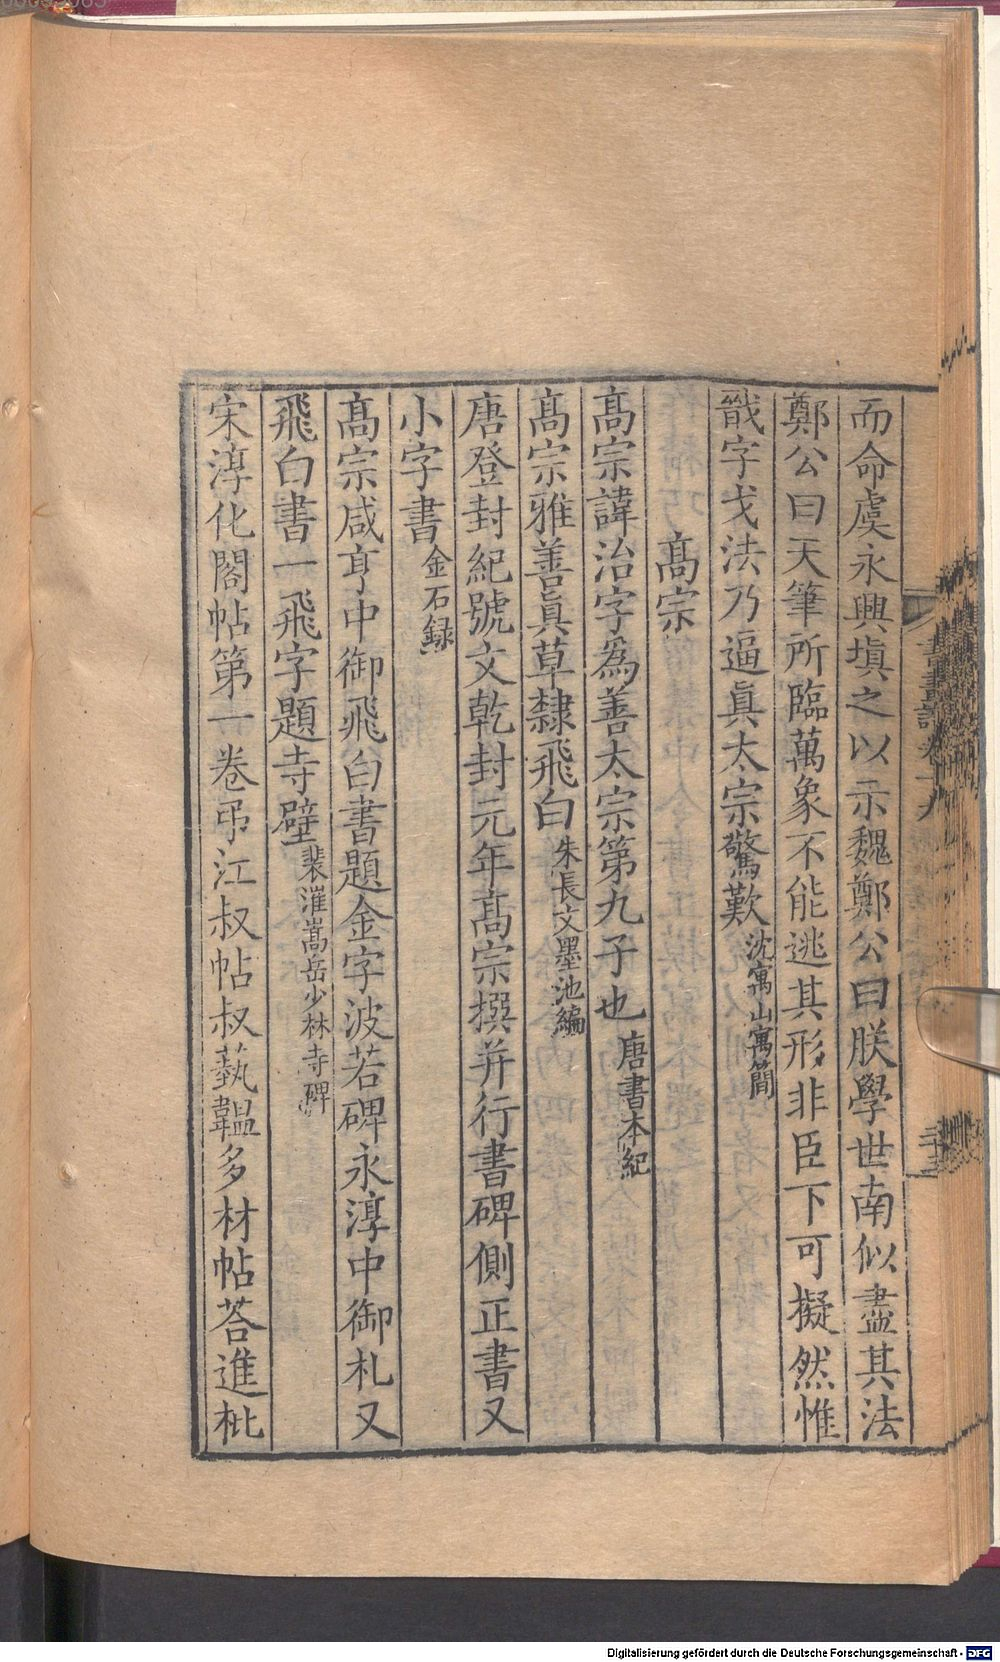 而命虞永興塡之以示魏鄭公曰朕學世南似盡其法
鄭公曰天筆所臨萬象不能逃其形非臣下可擬然惟
戩字戈法乃逼眞太宗驚歎沈寓山寓簡
髙宗
髙宗諱治字爲善太宗第九子也唐書本紀
髙宗雅善眞草隸飛白朱長文墨池編
唐登封紀號文乾封元年髙宗撰并行書碑側正書又
小字書金石録
髙宗咸亨中御飛白書題金字波若碑永淳中御札又
飛白書一飛字題寺壁裴漼嵩岳少林寺碑
宋淳化閣帖第一卷弔江叔帖叔藝韞多材帖荅進枇
書畫譜卷十九
Digitalisierung gefördert durch die Deutsche Forschungsgemeinschaft - DFG